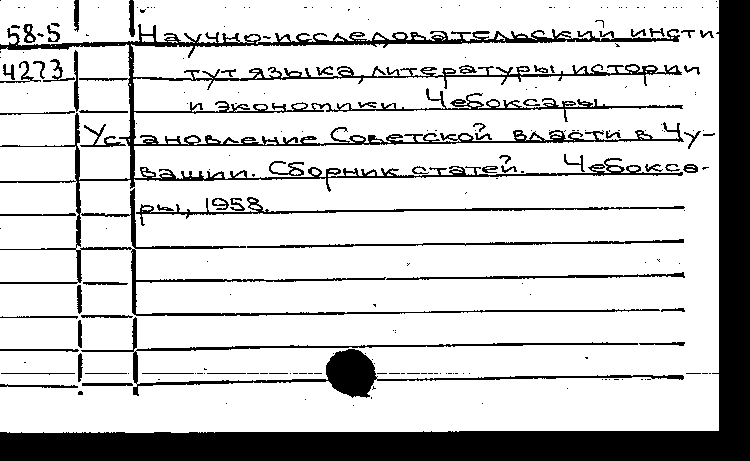 58-5 Научно-исследовательский инсти-
4273 тут языка, литературы, истории
и экономики. Чебоксары.
Установление Советской власти в Чу-
вашии. Сборник статей. Чебокса-
ры, 1958.